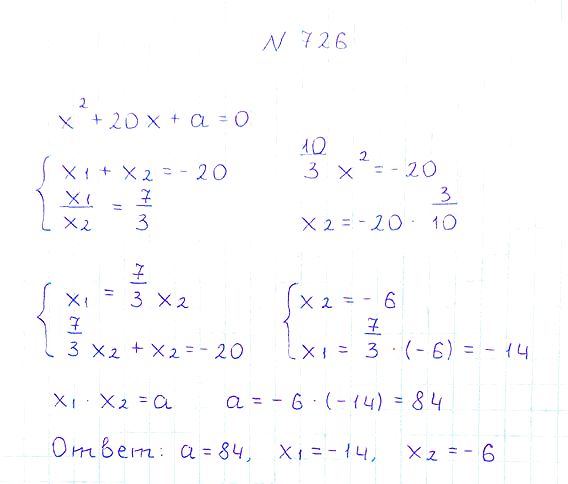 N 726
x² + 20x + a = 0
{ x₁ + x₂ = -20
x₁/x₂ = 7/3
10/3 x² = -20
x₂ = -20 · 3/10
{ x₁ = 7/3 x₂
7/3 x₂ + x₂ = -20
{ x₂ = -6
x₁ = 7/3 · (-6) = -14
x₁ · x₂ = a a = -6 · (-14) = 84
Ответ: a = 84, x₁ = -14, x₂ = -6